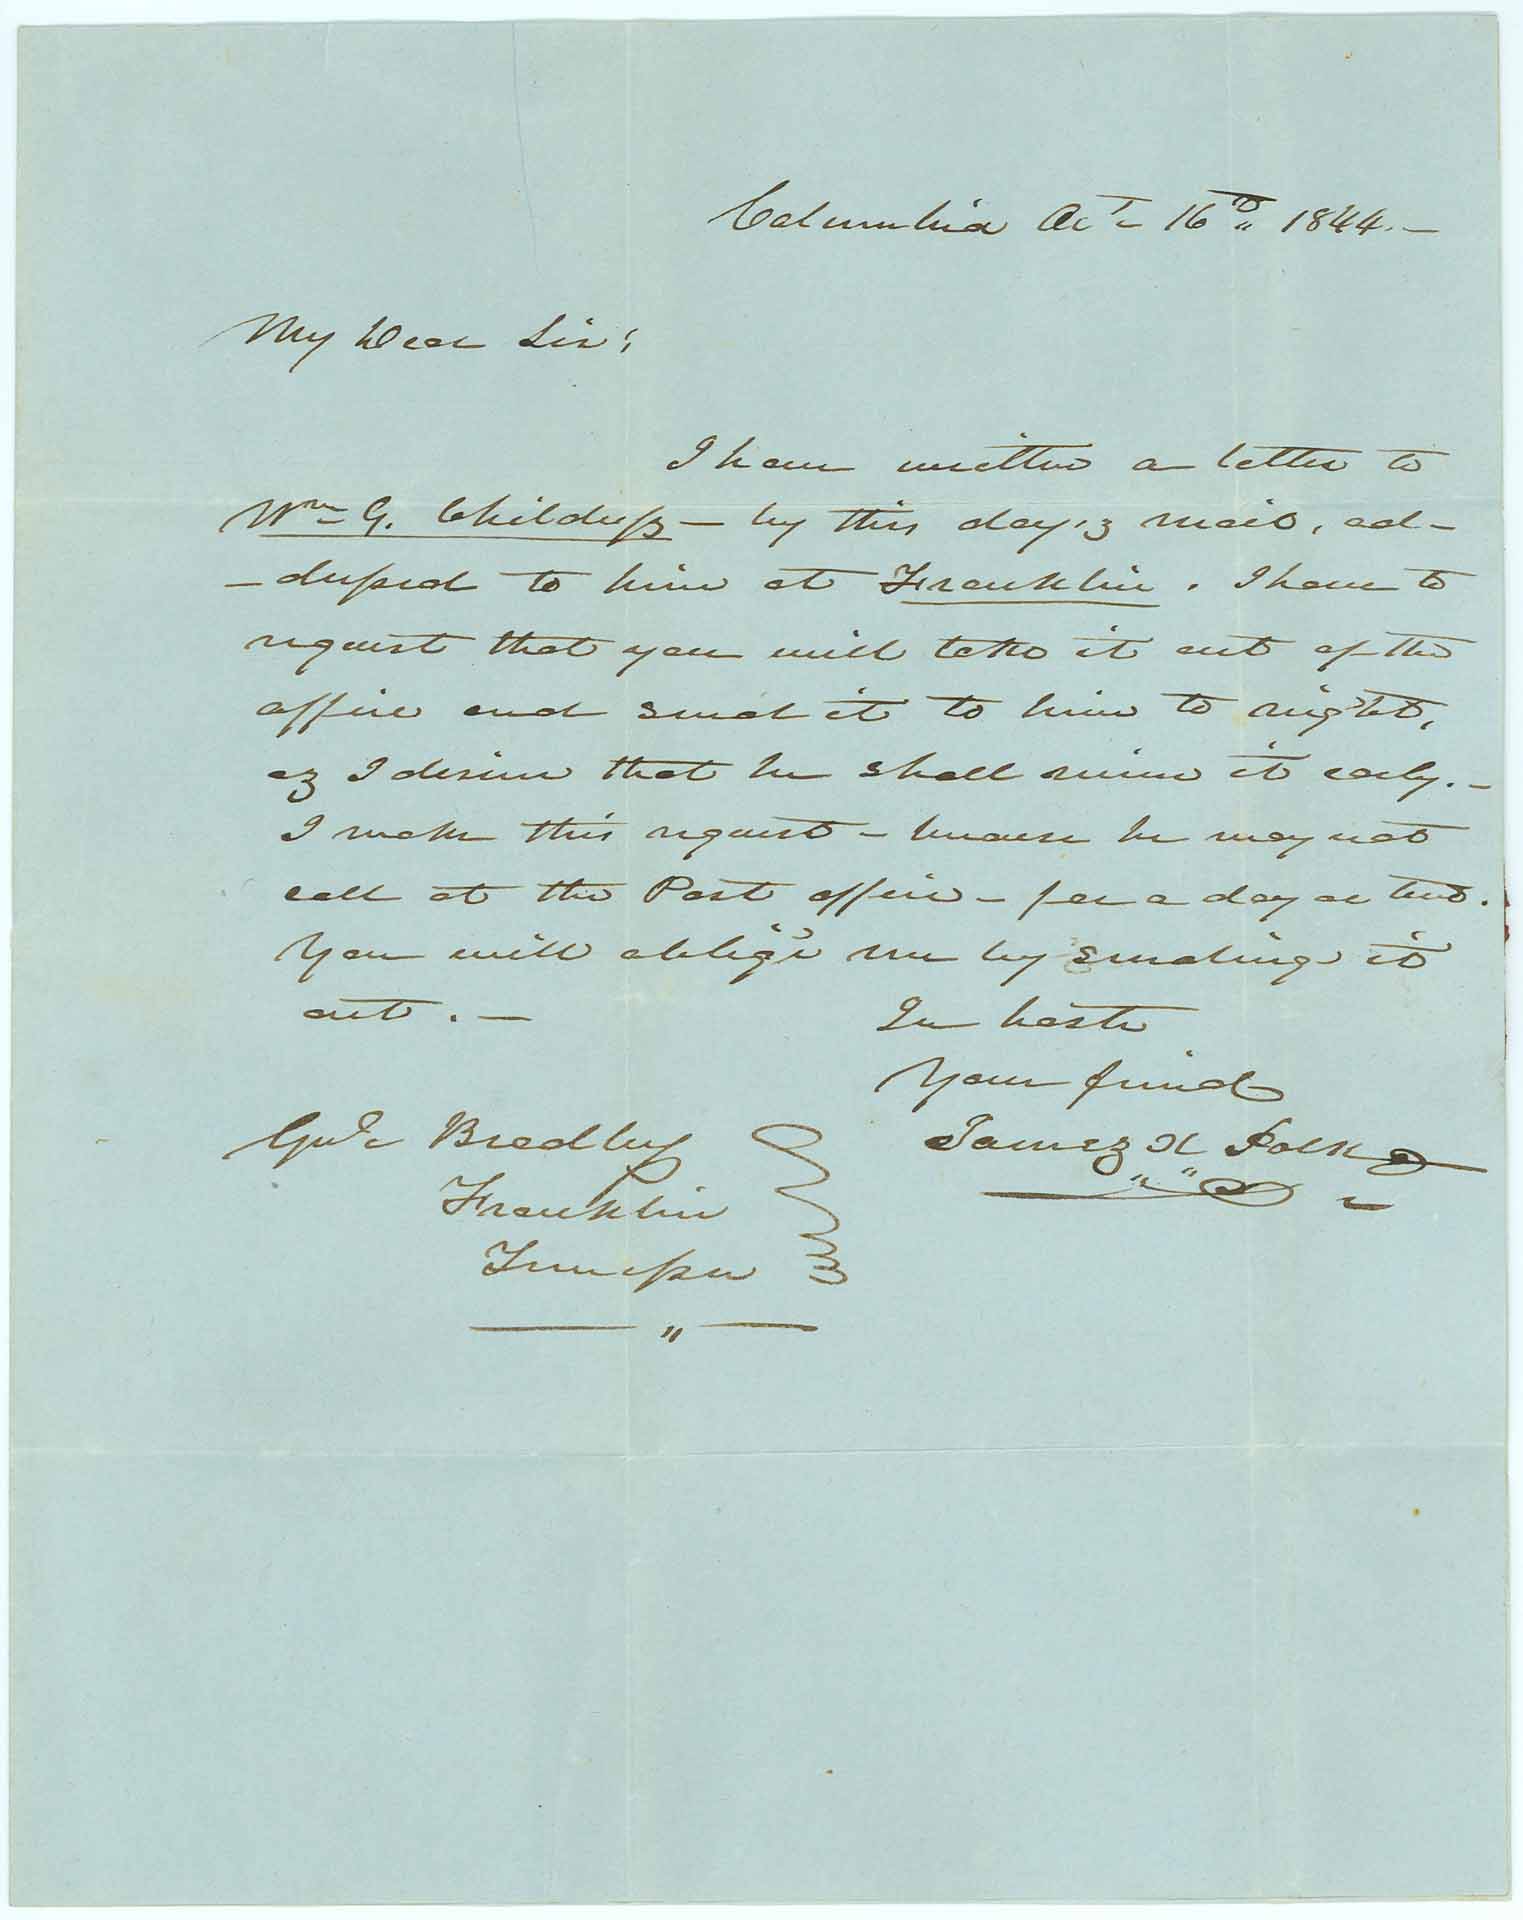 Columbia Oct 16th 1844.—
My Dear Sir;
I have written a letter to
Wm G. Childress — by this day's mail, ad-
-dressed to him at Franklin. I have to
request that you will take it out of the
office and send it to him to night,
as I desire that he shall receive it early.—
I make this request — because he may not
call at the Post office — for a day or two.
You will oblige me by sending it
out. —
In haste
Your friend
James K Polk
Bradley
Franklin
Tennessee